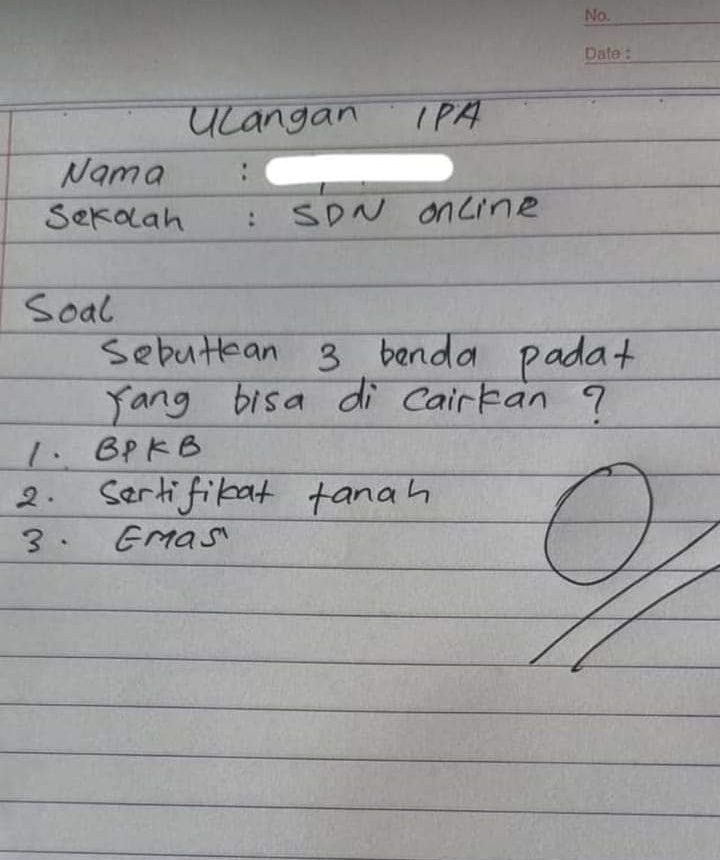 No.
Date :
Ulangan IPA
Nama :
Sekolah : SDN online
Soal
Sebutkan 3 benda padat
Yang bisa di Cairkan ?
1. BPKB
2. Sertifikat tanah
3. Emas
0